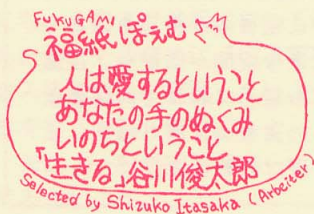 FUKUGAMI
福紙ぽえむ
人は愛するということ
あなたの手のぬくみ
いのちということ
「生きる」谷川俊太郎
Selected by Shizuko Itasaka (Arbeiter)